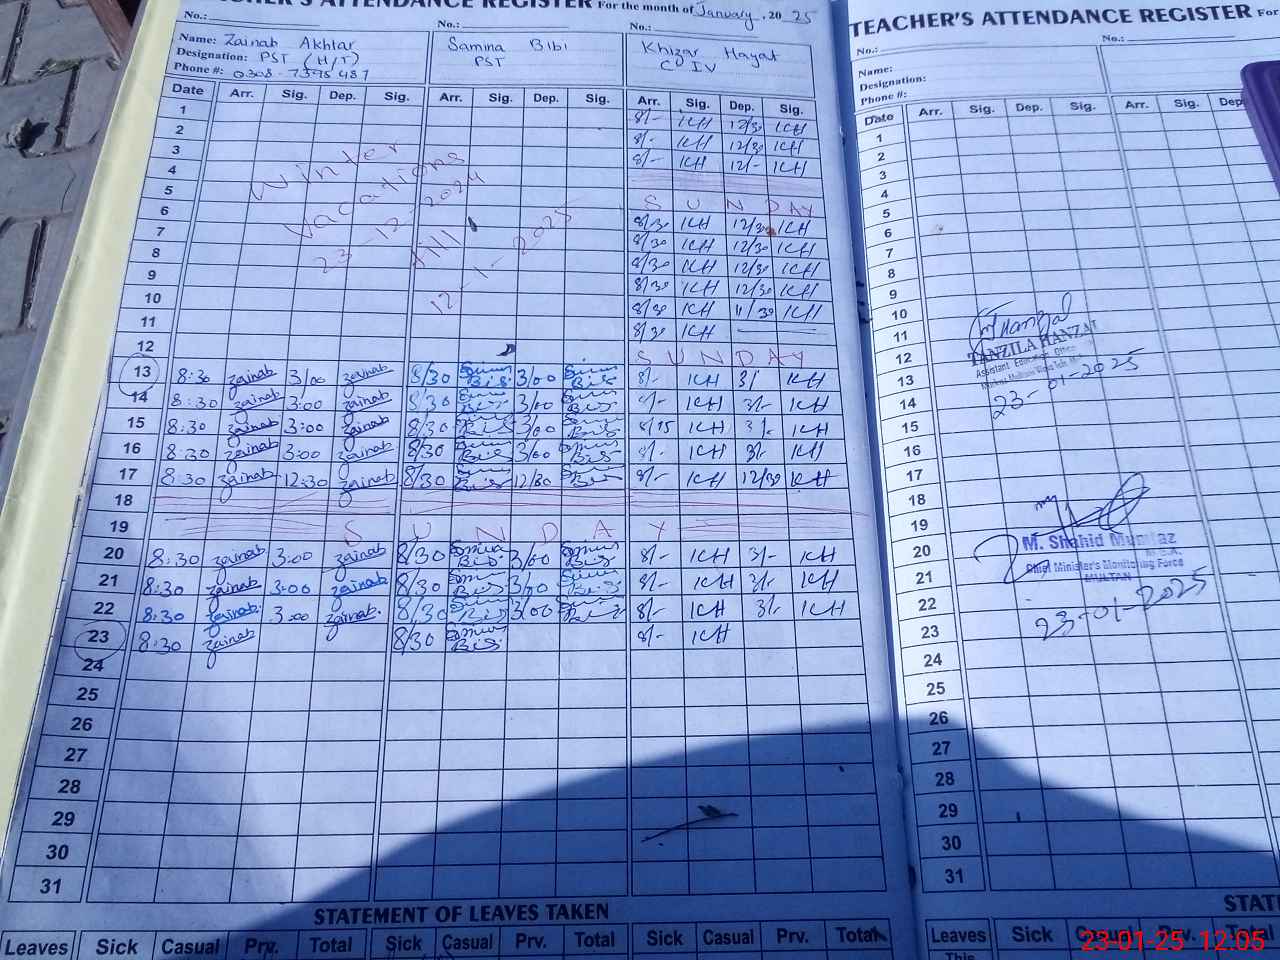 TEACHER'S ATTENDANCE REGISTER For the month of January, 2025
No.: No.: No.:
Name: Zainab Akhtar
Designation: PST (H/T)
Phone #: 0308-7395487
Samina Bibi
PST
Khizar Hayat
C IV
Date Arr. Sig. Dep. Sig. Arr. Sig. Dep. Sig. Arr. Sig. Dep. Sig.
1 8/- KH 12/30 KH
2 8/- KH 12/30 KH
3 8/- KH 12/- KH
4
5 SUNDAY
6 8/30 KH 12/30 KH
7 8/30 KH 12/30 KH
8 8/30 KH 12/30 KH
9 8/30 KH 12/30 KH
10 8/30 KH 11/30 KH
11 8/30 KH
12 SUNDAY
Winter
Vacations
23-12-2024
till
12-1-2025
13 8:30 zainab 3/00 zainab 8/30 3/00 8/- KH 3/ KH
14 8:30 zainab 3:00 zainab 8/30 3/00 8/- KH 3/- KH
15 8:30 zainab 3:00 zainab 8/30 3/00 8/15 KH 3/- KH
16 8:30 zainab 3:00 zainab 8/30 3/00 8/- KH 3/- KH
17 8:30 zainab 12:30 zainab 8/30 12/30 8/- KH 12/30 KH
18
19 SUNDAY
20 8:30 zainab 3:00 zainab 8/30 3/00 8/- KH 3/- KH
21 8:30 zainab 3:00 zainab 8/30 3/00 8/- KH 3/- KH
22 8:30 zainab 3:00 zainab 8/30 3/00 8/- KH 3/- KH
23 8:30 zainab 8/30 8/- KH
24
25
26
27
28
29
30
31
STATEMENT OF LEAVES TAKEN
Leaves Sick Casual Prv. Total Sick Casual Prv. Total Sick Casual Prv. Total
TEACHER'S ATTENDANCE REGISTER For
No.: No.:
Name:
Designation:
Phone #:
Date Arr. Sig. Dep. Sig. Arr. Sig. Dep.
1
2
3
4
5
6
7
8
9
10
11
12
13
14
15
16
17
18
19
20
21
22
23
24
25
26
27
28
29
30
31
TANZILA HANZAL
Assistant Education Officer
23-01-2025
M. Shahid Mumtaz
M.E.A.
Chief Minister's Monitoring Force
MULTAN
23-01-2025
STAT
Leaves Sick Casual Prv. Total
This
23-01-25 12:05